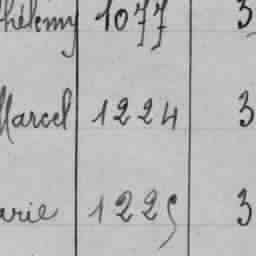 thélemy 1077 3
Marcel 1224 3
arie 1225 3